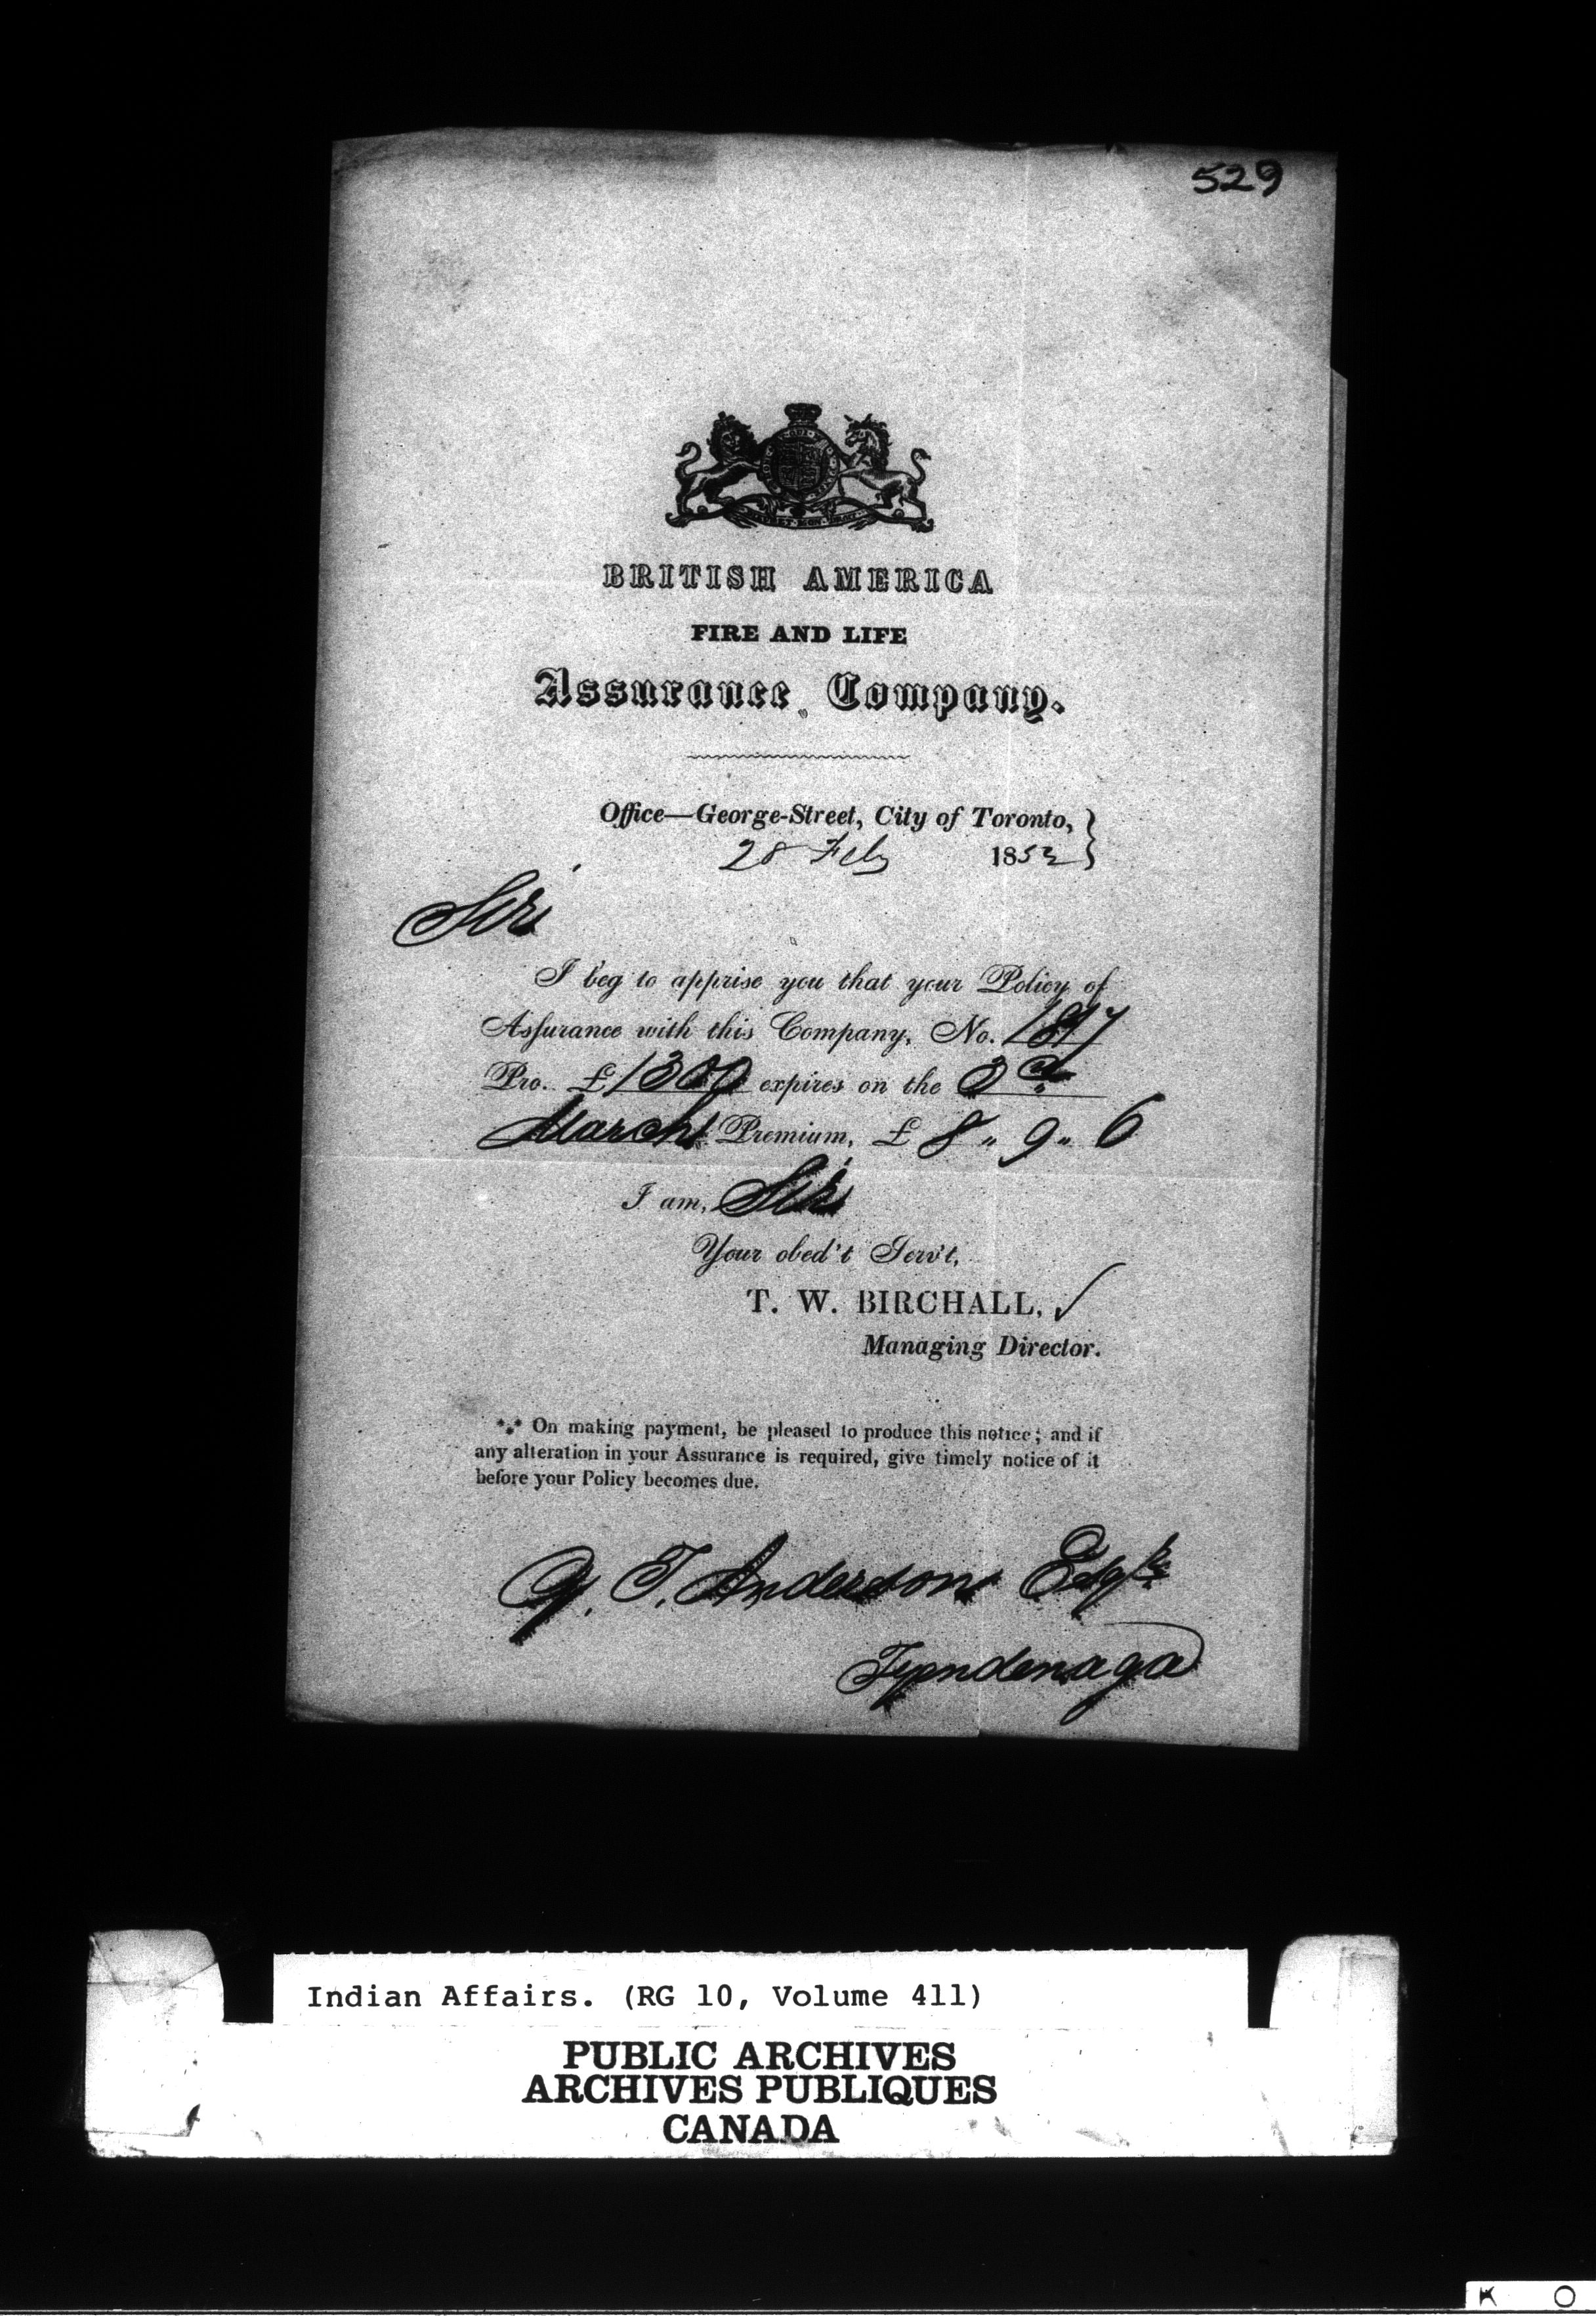 529
BRITISH AMERICA
FIRE AND LIFE
Assurance Company.
Office—George-Street, City of Toronto,
28 Feby 1852
Sir
I beg to apprise you that your Policy of
Assurance with this Company, No. 1817
Pro. £1300 expires on the 3d
March Premium, £ 8 " 9 " 6
I am, Sir
Your obed't Serv't,
T. W. BIRCHALL,
Managing Director.
*** On making payment, be pleased to produce this notice; and if
any alteration in your Assurance is required, give timely notice of it
before your Policy becomes due.
T. Anderson Esqre
Tyendenaga
Indian Affairs. (RG 10, Volume 411)
PUBLIC ARCHIVES
ARCHIVES PUBLIQUES
CANADA
K O